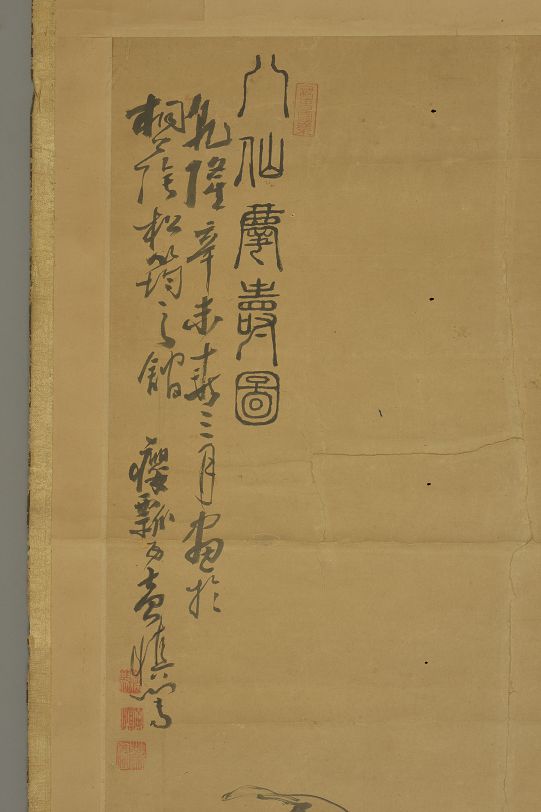 八仙慶壽圖
乾隆辛未春三月畫於
桐陰松筠之館 癭瓢子黃慎寫